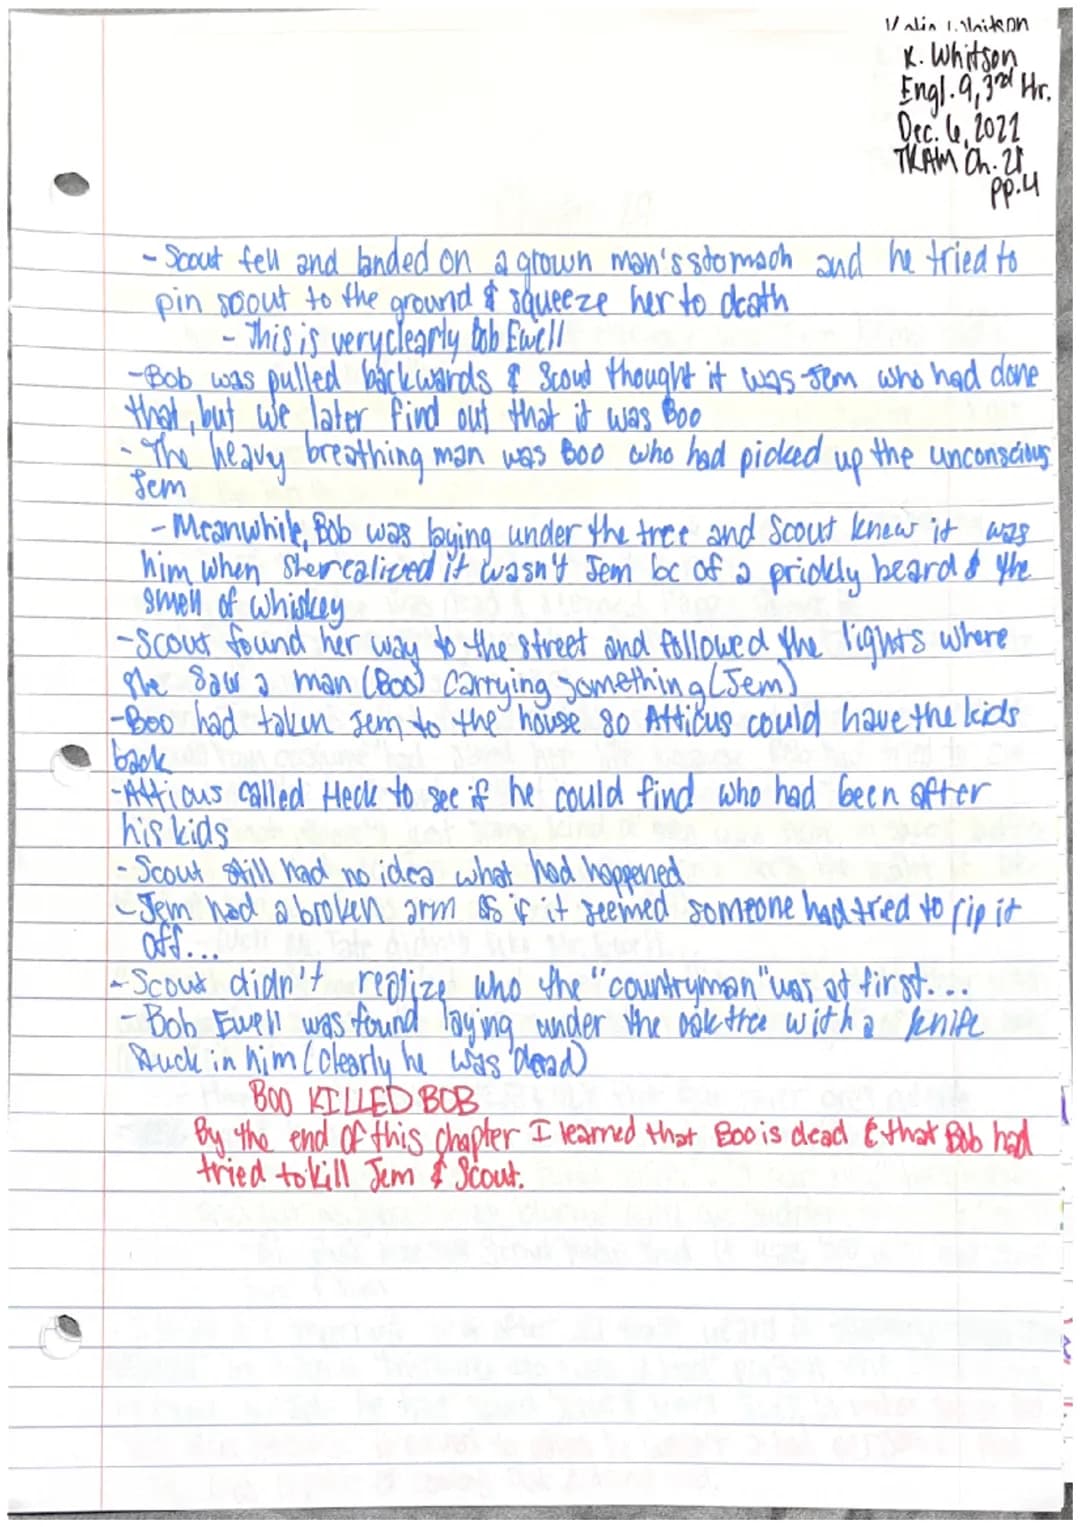 K. Whitson
Engl. 9, 3rd Hr.
Dec. 6, 2021
TKAM Ch. 28
pp. 4
- Scout fell and landed on a grown man's stomach and he tried to
pin scout to the ground & squeeze her to death
- This is very clearly Bob Ewell
- Bob was pulled backwards & Scout thought it was Jem who had done
that, but we later find out that it was Boo
- The heavy breathing man was Boo who had picked up the unconscious
Jem
- Meanwhile, Bob was laying under the tree and Scout knew it was
him when she realized it wasn't Jem bc of a prickly beard & the
smell of whiskey
- Scout found her way to the street and followed the lights where
she saw a man (Boo) carrying something (Jem)
- Boo had taken Jem to the house so Atticus could have the kids
back
- Atticus called Heck to see if he could find who had been after
his kids
- Scout still had no idea what had happened
- Jem had a broken arm as if it seemed someone had tried to rip it
off...
- Scout didn't realize who the "countryman" was at first...
- Bob Ewell was found laying under the oak tree with a knife
stuck in him (clearly he was dead)
BOO KILLED BOB
By the end of this chapter I learned that Boo is dead & that Bob had
tried to kill Jem & Scout.